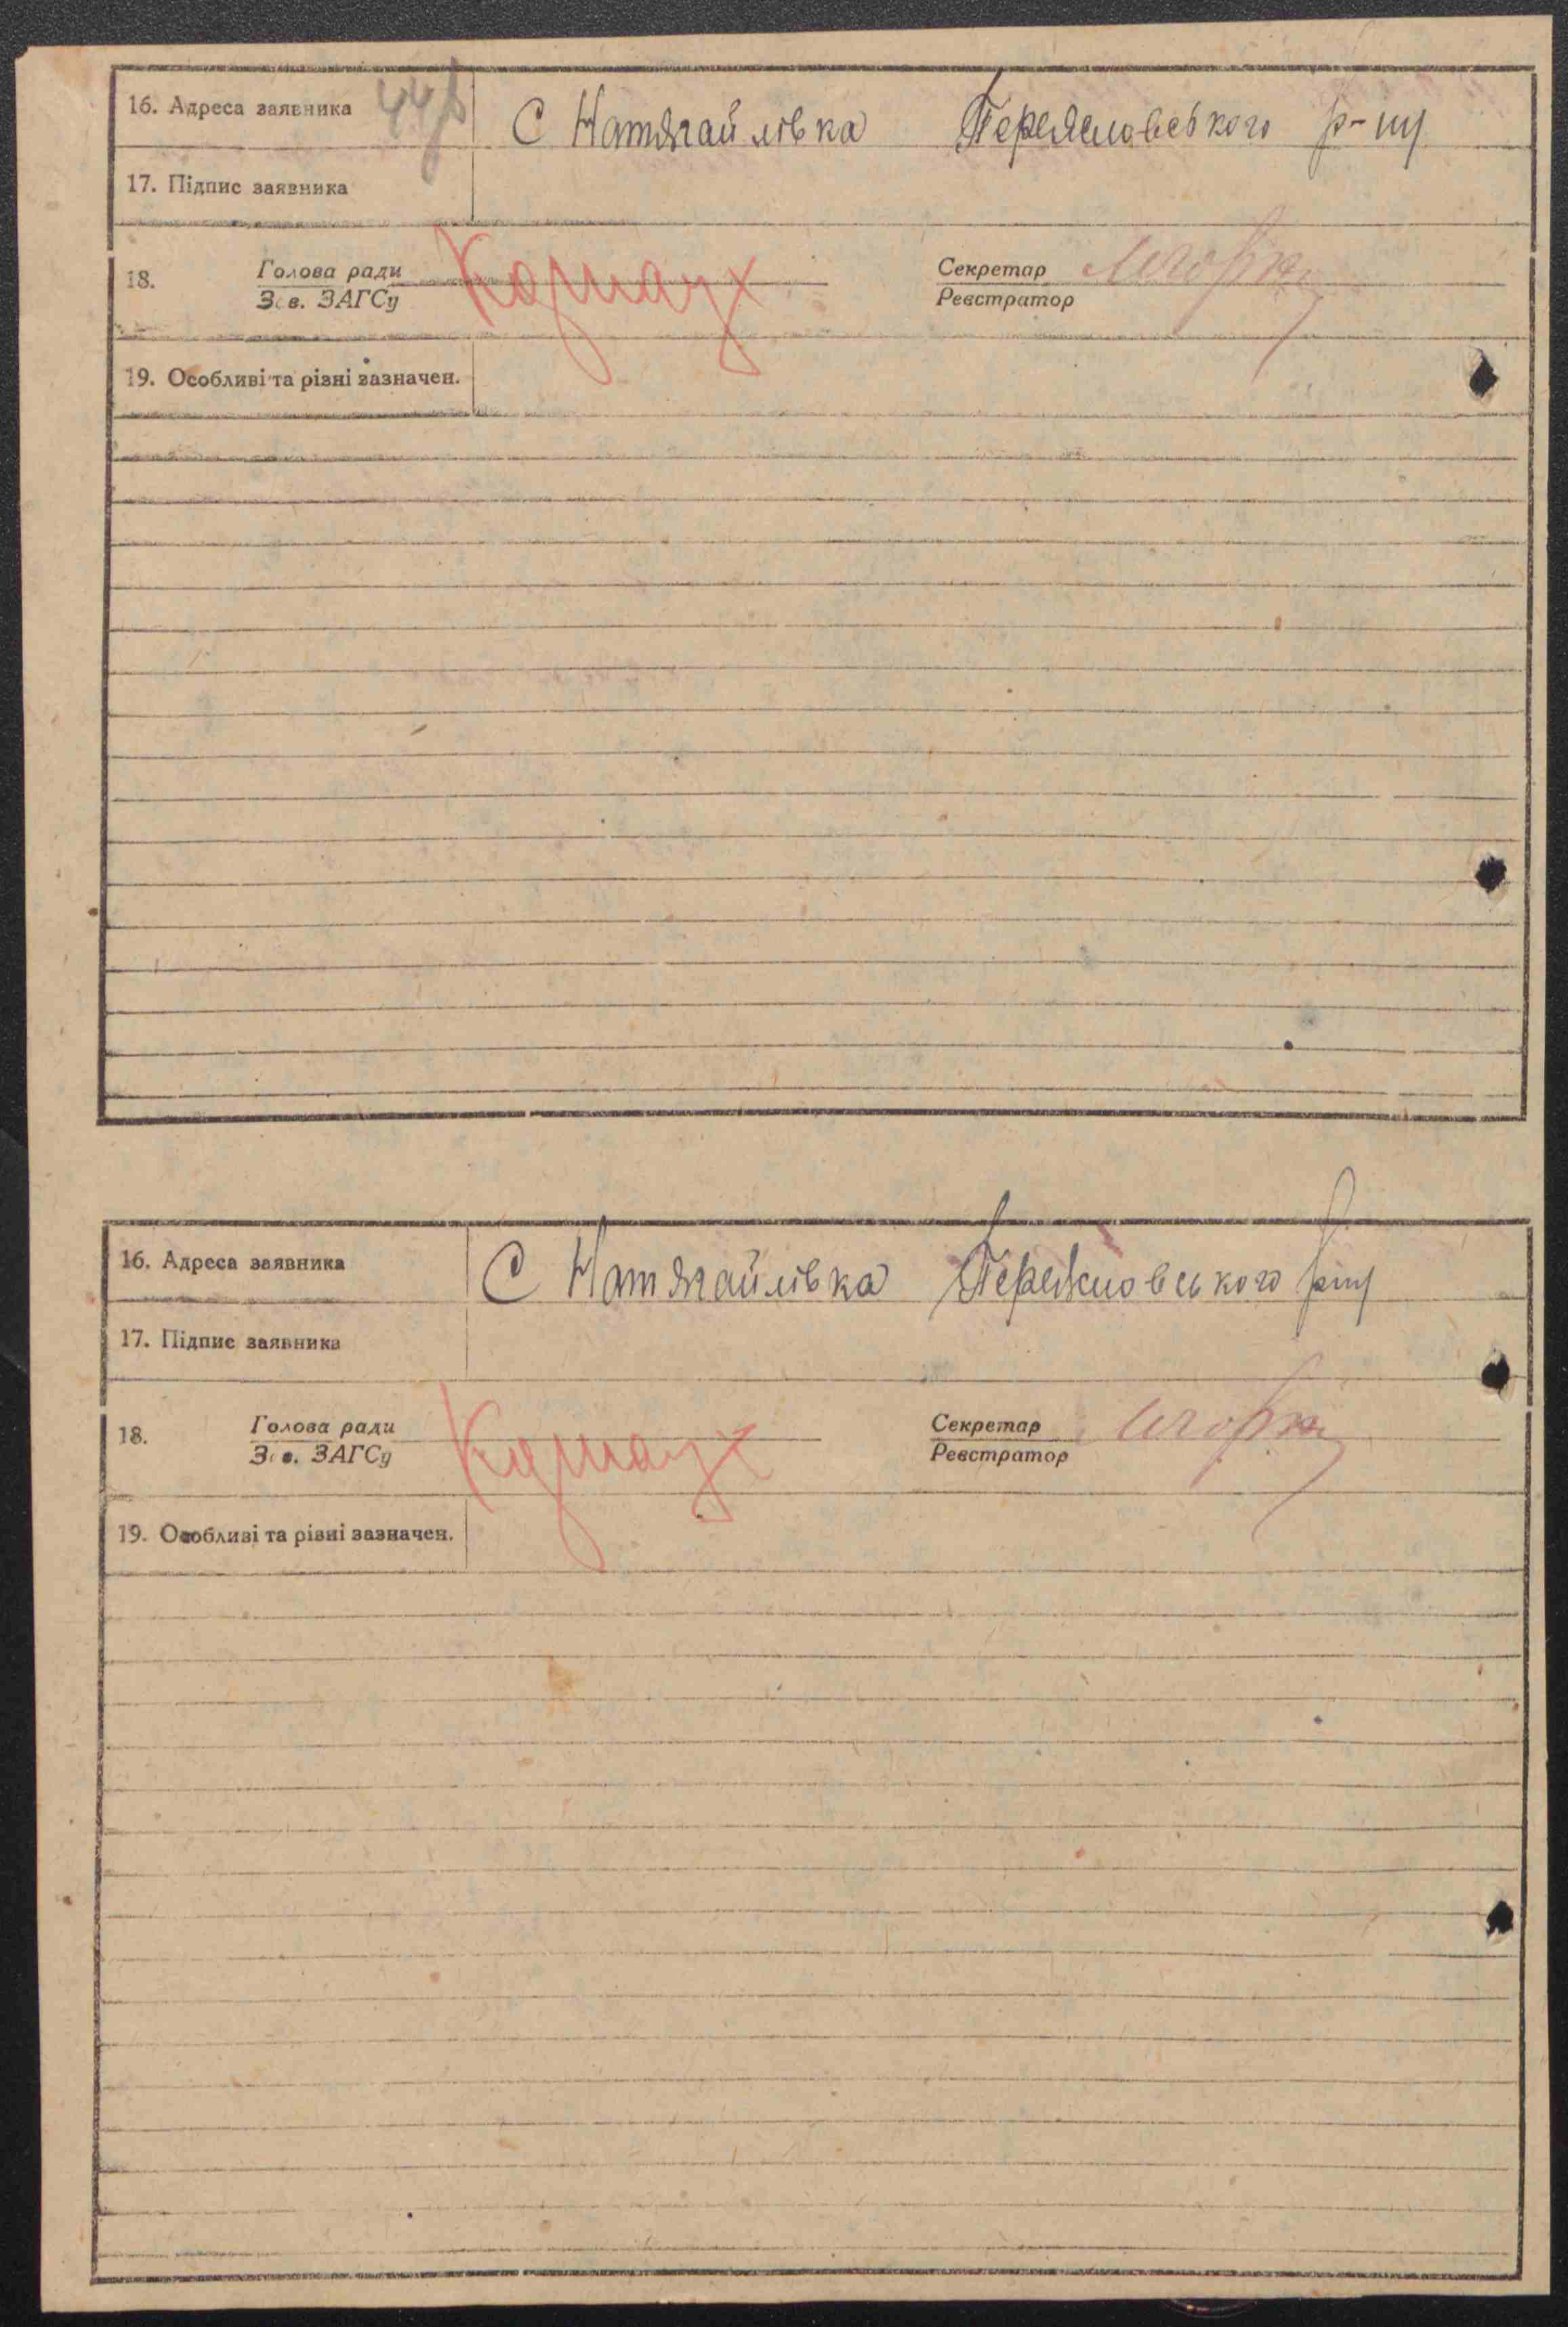 16. Адреса заявника
С Натягайлівка Переяславського р-ну
17. Підпис заявника
18. Голова ради
Зав. ЗАГСу
Секретар
Реєстратор
19. Особливі та різні зазначен.
16. Адреса заявника
С Натягайлівка Переяславського р-ну
17. Підпис заявника
18. Голова ради
Зав. ЗАГСу
Секретар
Реєстратор
19. Особливі та різні зазначен.